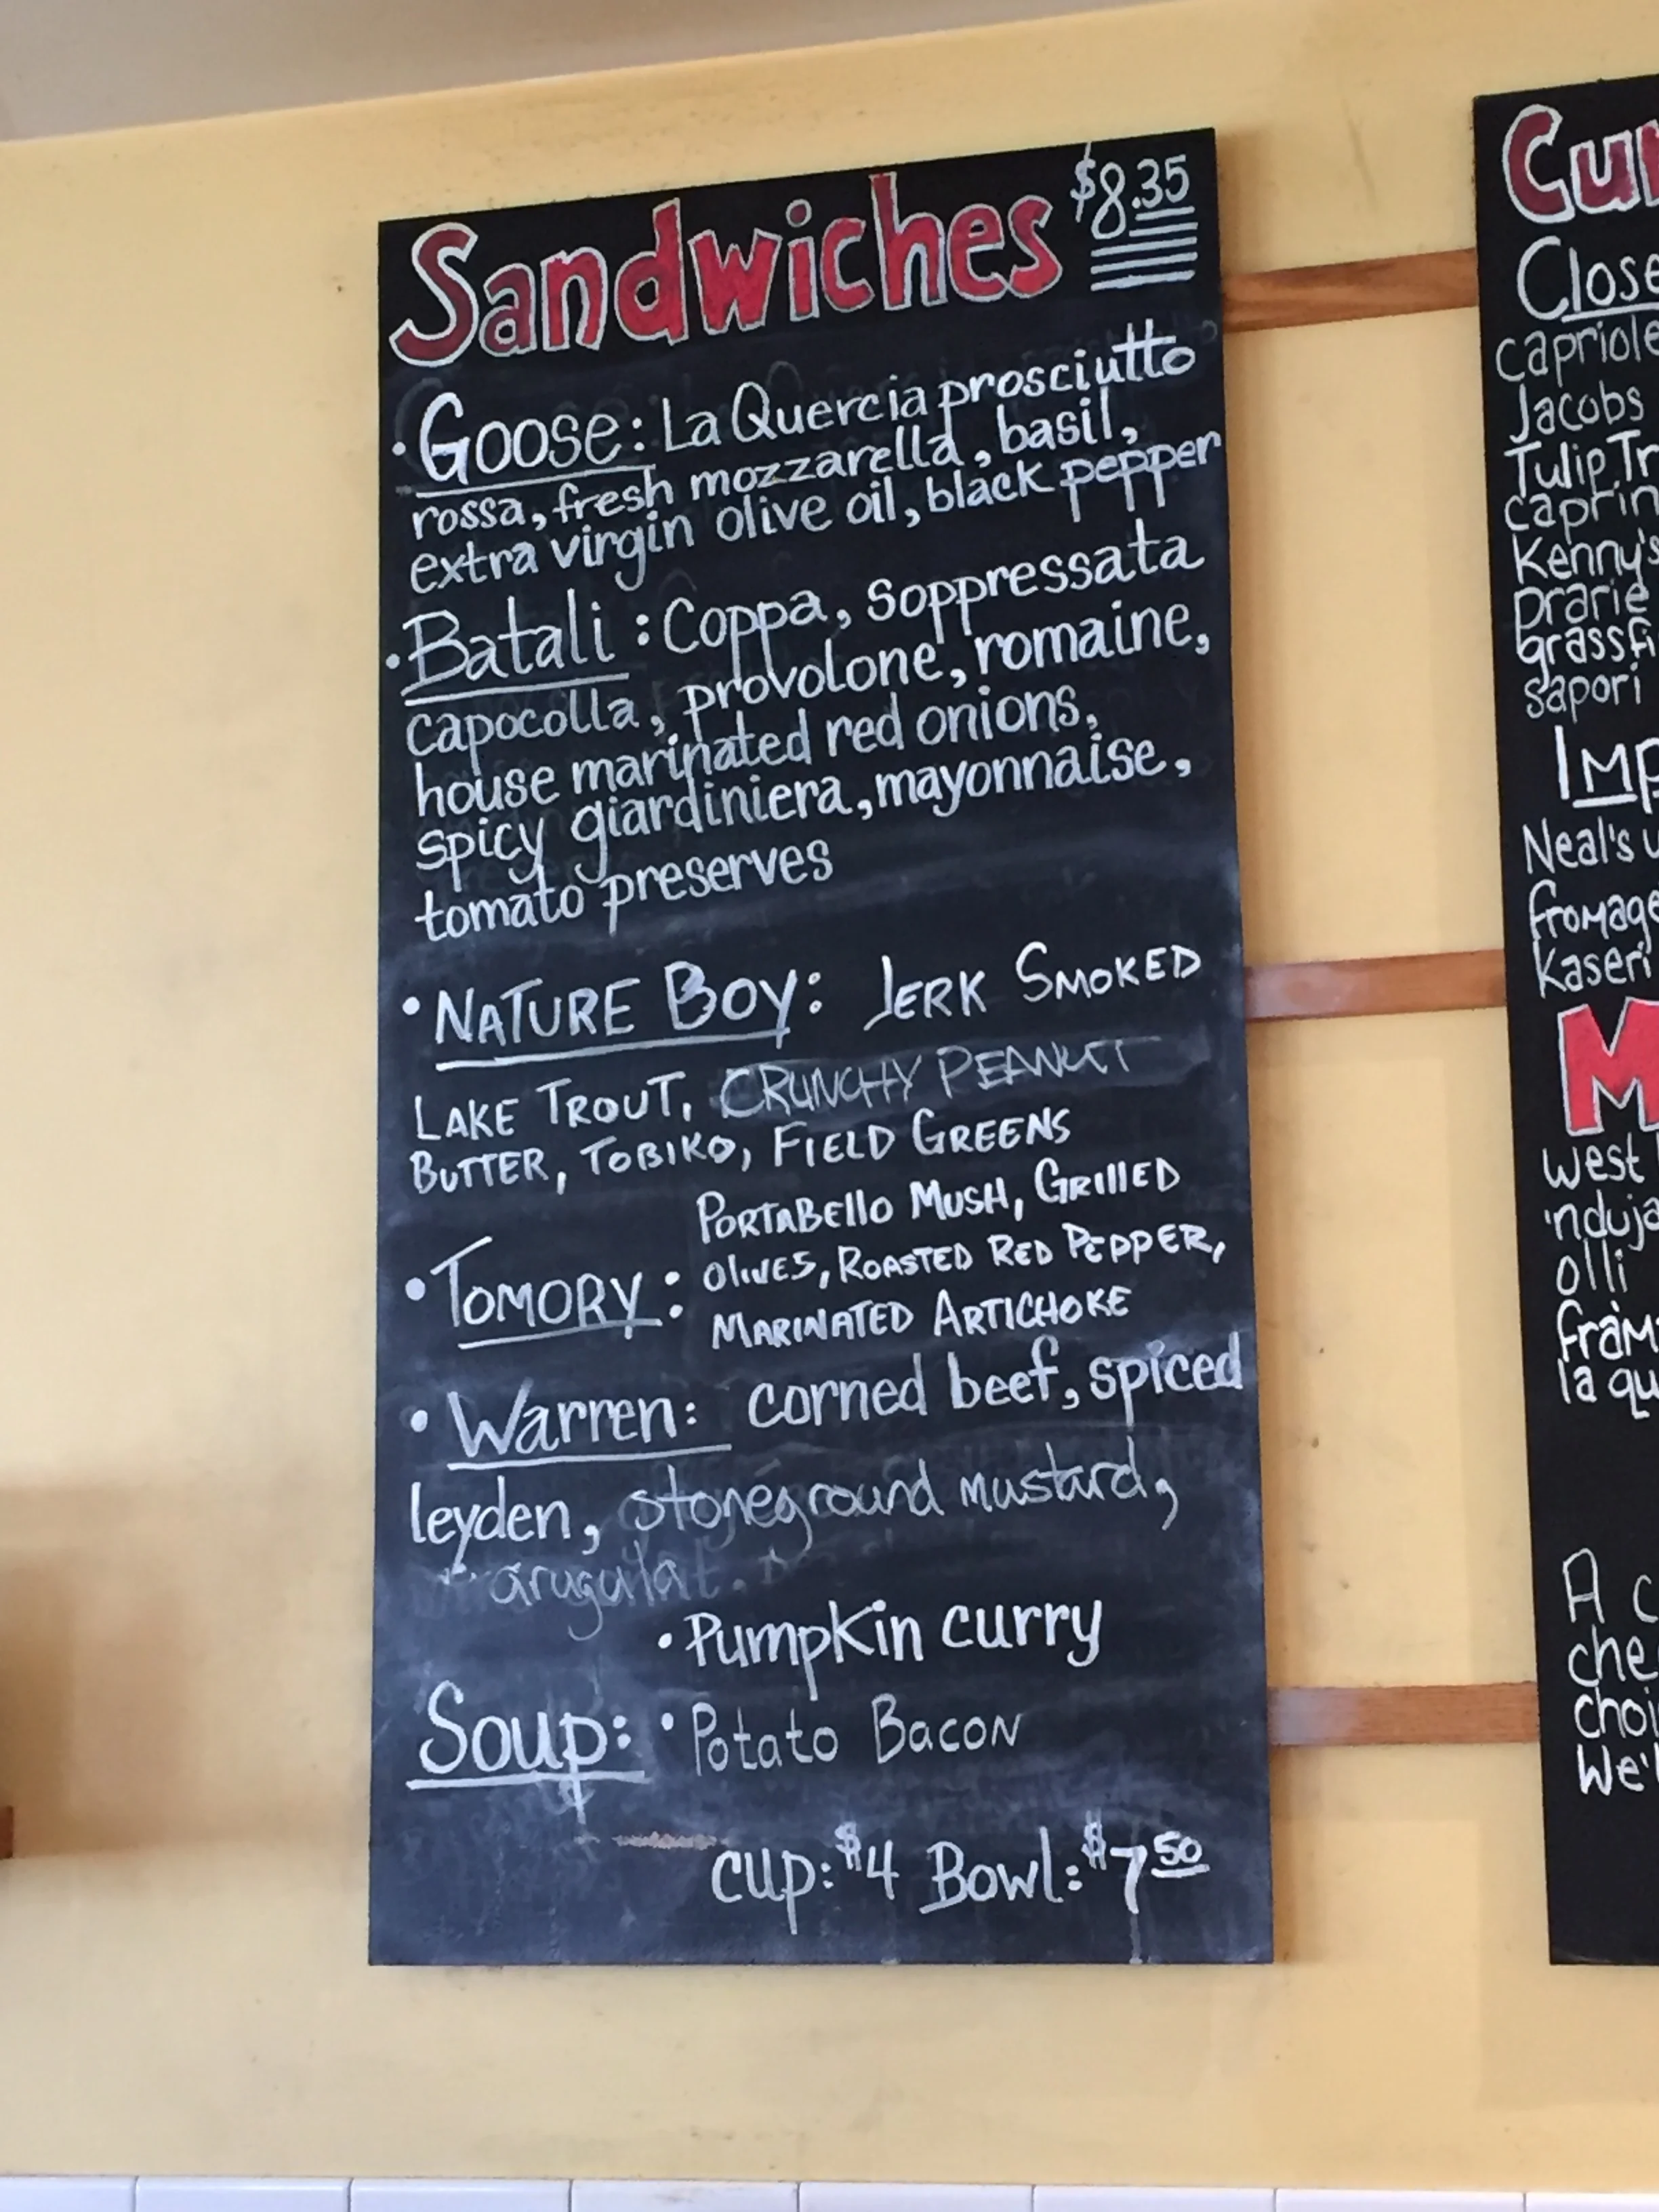 Sandwiches $8.35
• Goose: La Quercia prosciutto
rossa, fresh mozzarella, basil,
extra virgin olive oil, black pepper
• Batali: Coppa, Soppressata
capocolla, provolone, romaine,
house marinated red onions,
spicy giardiniera, mayonnaise,
tomato preserves
• NATURE BOY: JERK SMOKED
LAKE TROUT, CRUNCHY PEANUT
BUTTER, TOBIKO, FIELD GREENS
• TOMORY: PORTABEllo MUSH, GRIllED
OlIVES, ROASTED RED PEPPER,
MARINATED ARTICHOKE
• Warren: corned beef, spiced
leyden, stoneground mustard,
arugula
• Pumpkin curry
Soup: • Potato Bacon
cup: $4 Bowl: $7 50
Close
capriole
Jacobs
Tulip Tr
caprin
Kenny's
prarie
grassfi
sapori
Imp
Neal's
fromage
Kaseri
M
west
'nduja
olli
fram
la qu
A c
che
choi
We'l